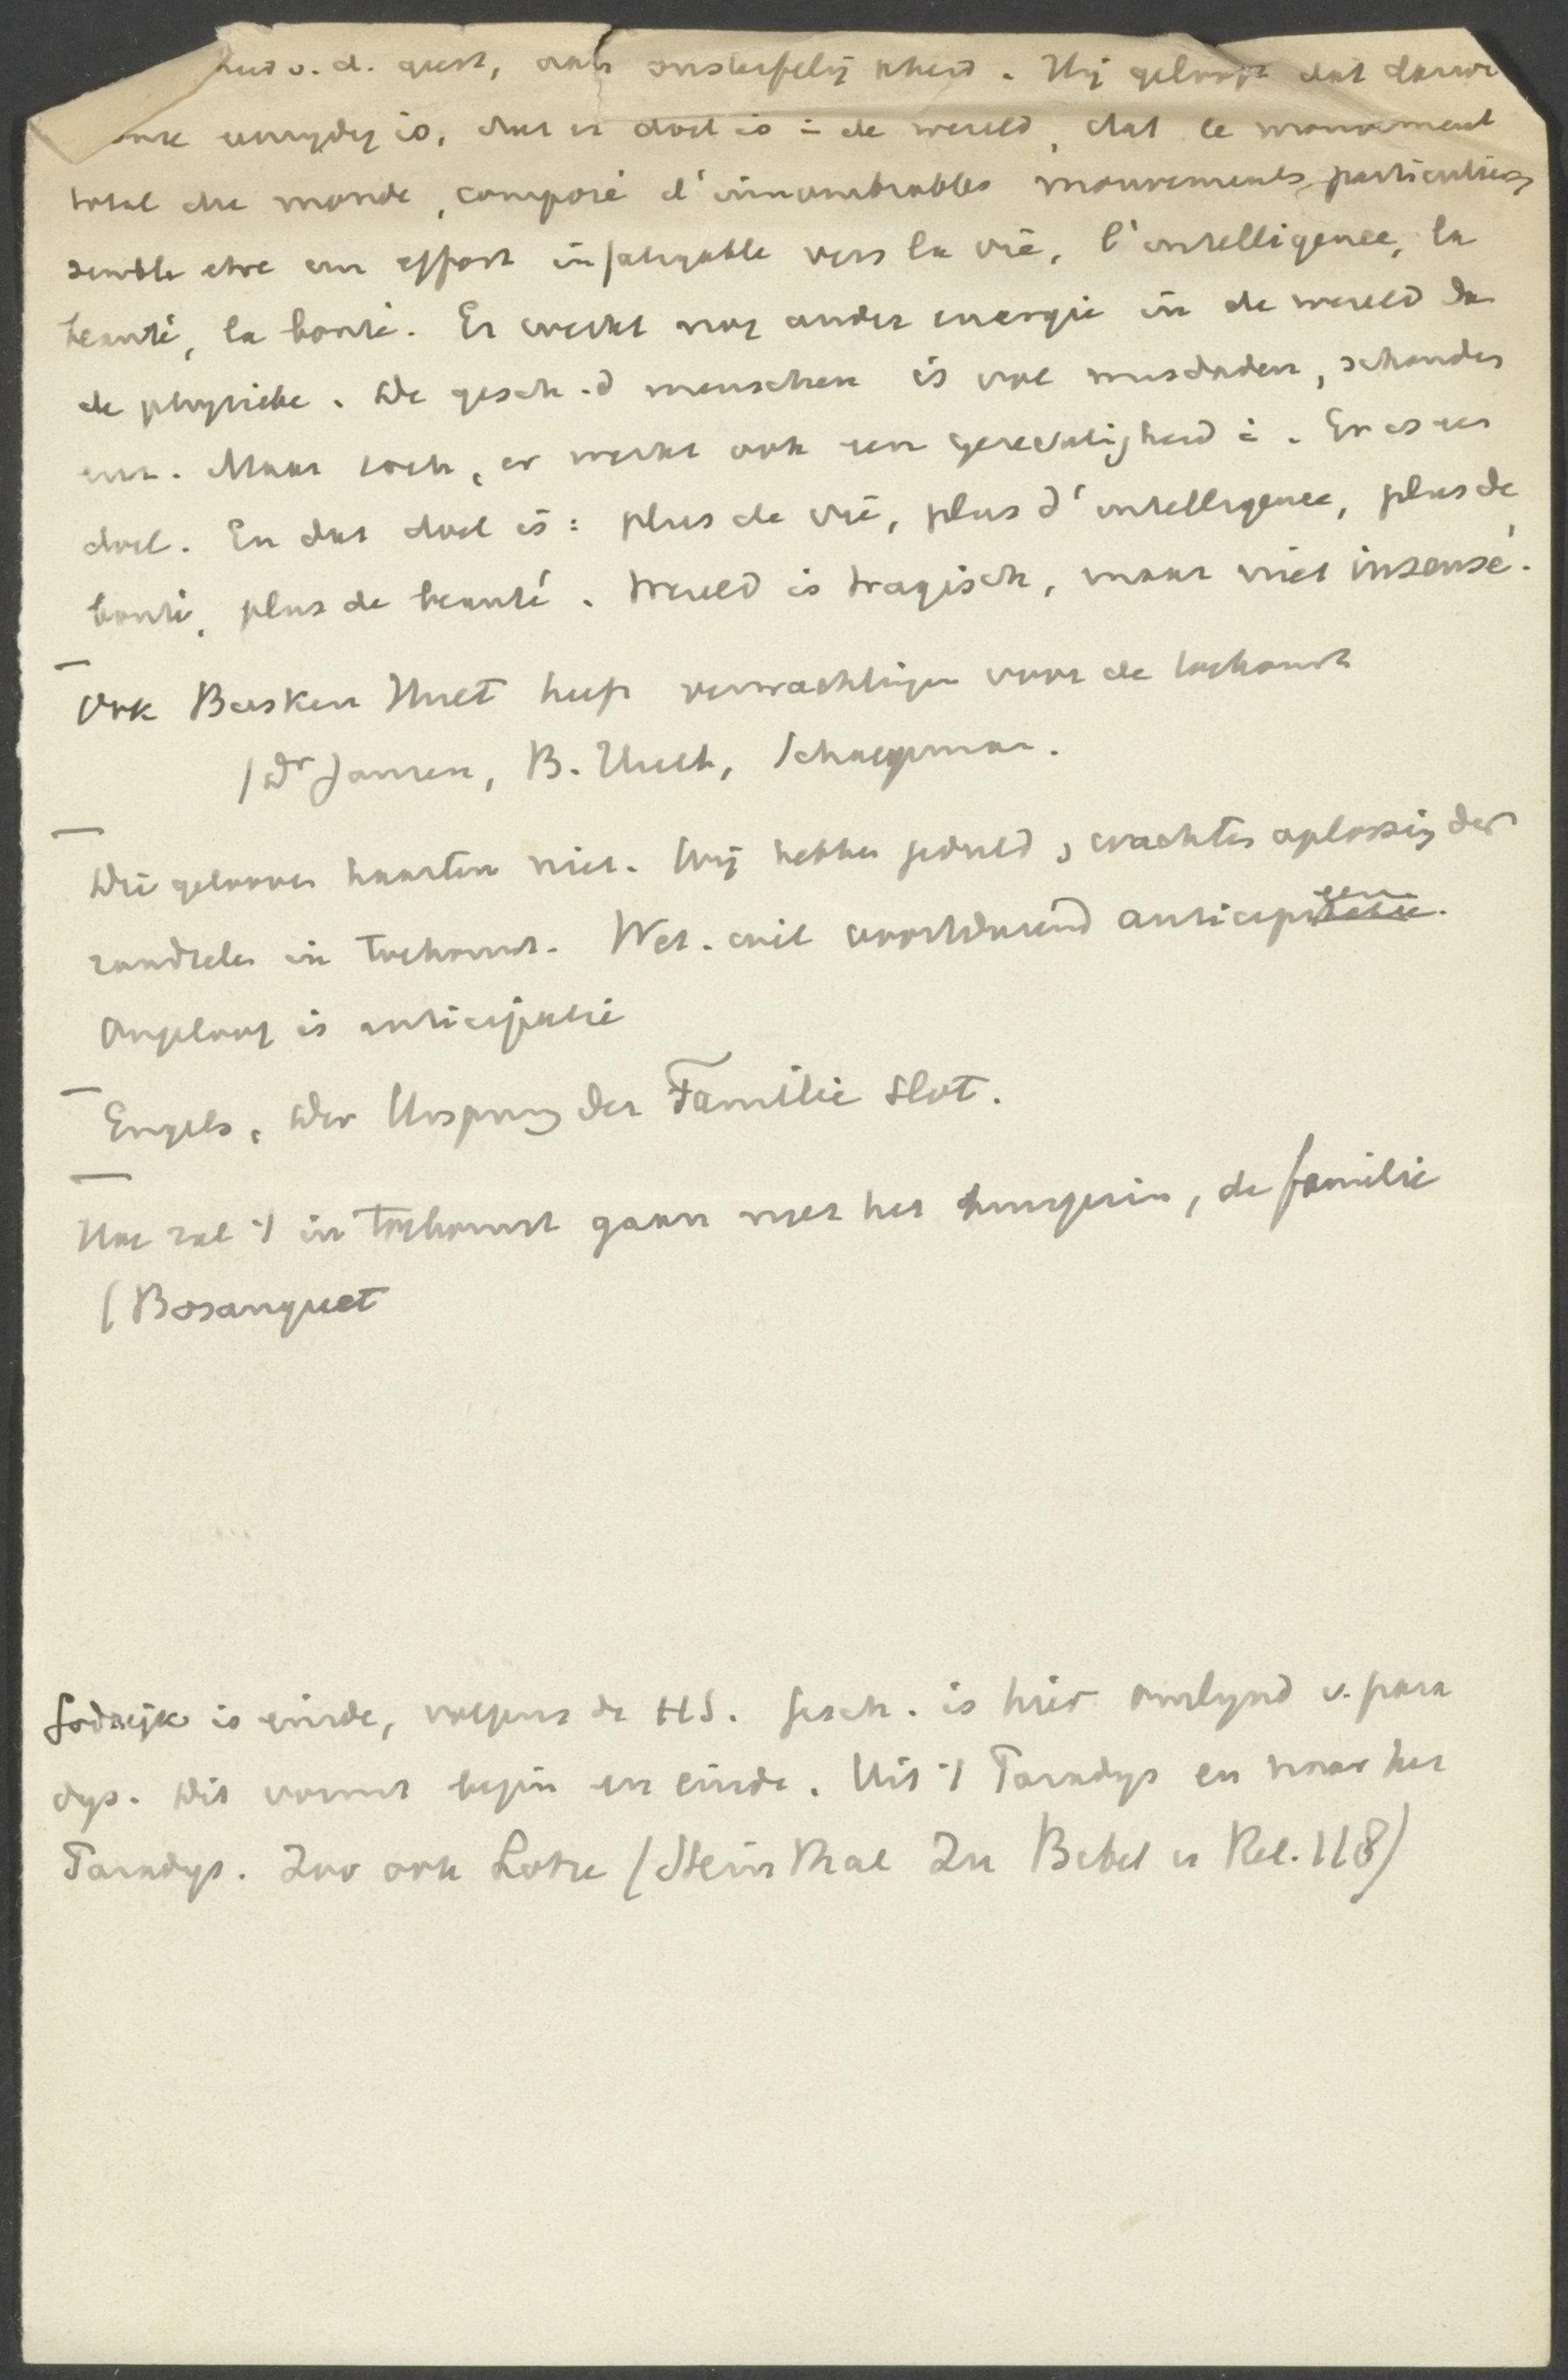 heid v. d. geest, aan onsterfelijkheid. Hij gelooft dat
eenzydig is, dat er doel is in de wereld, dat le mouvement
total du monde, composé d'innombrables mouvements particuliers
semble etre un effort infatigable vers la vie, l'intelligence, la
beauté, la bonté. Er werkt nog ander energie in de wereld dan
de physieke. De gesch. d menschen is vol misdaden, schanden
enz. Maar toch, er werkt ook een gerechtigheid i. Er is een
doel. En dat doel is: plus de vie, plus d'intelligence, plus de
bonté, plus de beauté. Wereld is tragisch, maar niet insensé.
Ook Busken Huet heeft verwachtingen voor de toekomst
(Dr Jansen, B. Huet, Schaepman.
Die gelooven haasten niet. Wij hebben geduld, wachten oplossing der
raadselen in toekomst. Wet. wil voortdurend anticipeeren.
Ongeloof is anticipatie
Engels, Der Ursprung der Familie slot.
Hoe zal 't in toekomst gaan met het huisgezin, de familie
(Bosanquet
Godsrijk is einde, volgens de HS. Gesch. is hier omlynd v. para
dys. Dit vormt begin en einde. Uit 't Paradys en naar het
Paradys. Zoo ook Lotze (Steinthal Zu Bibel u Rel. 118)